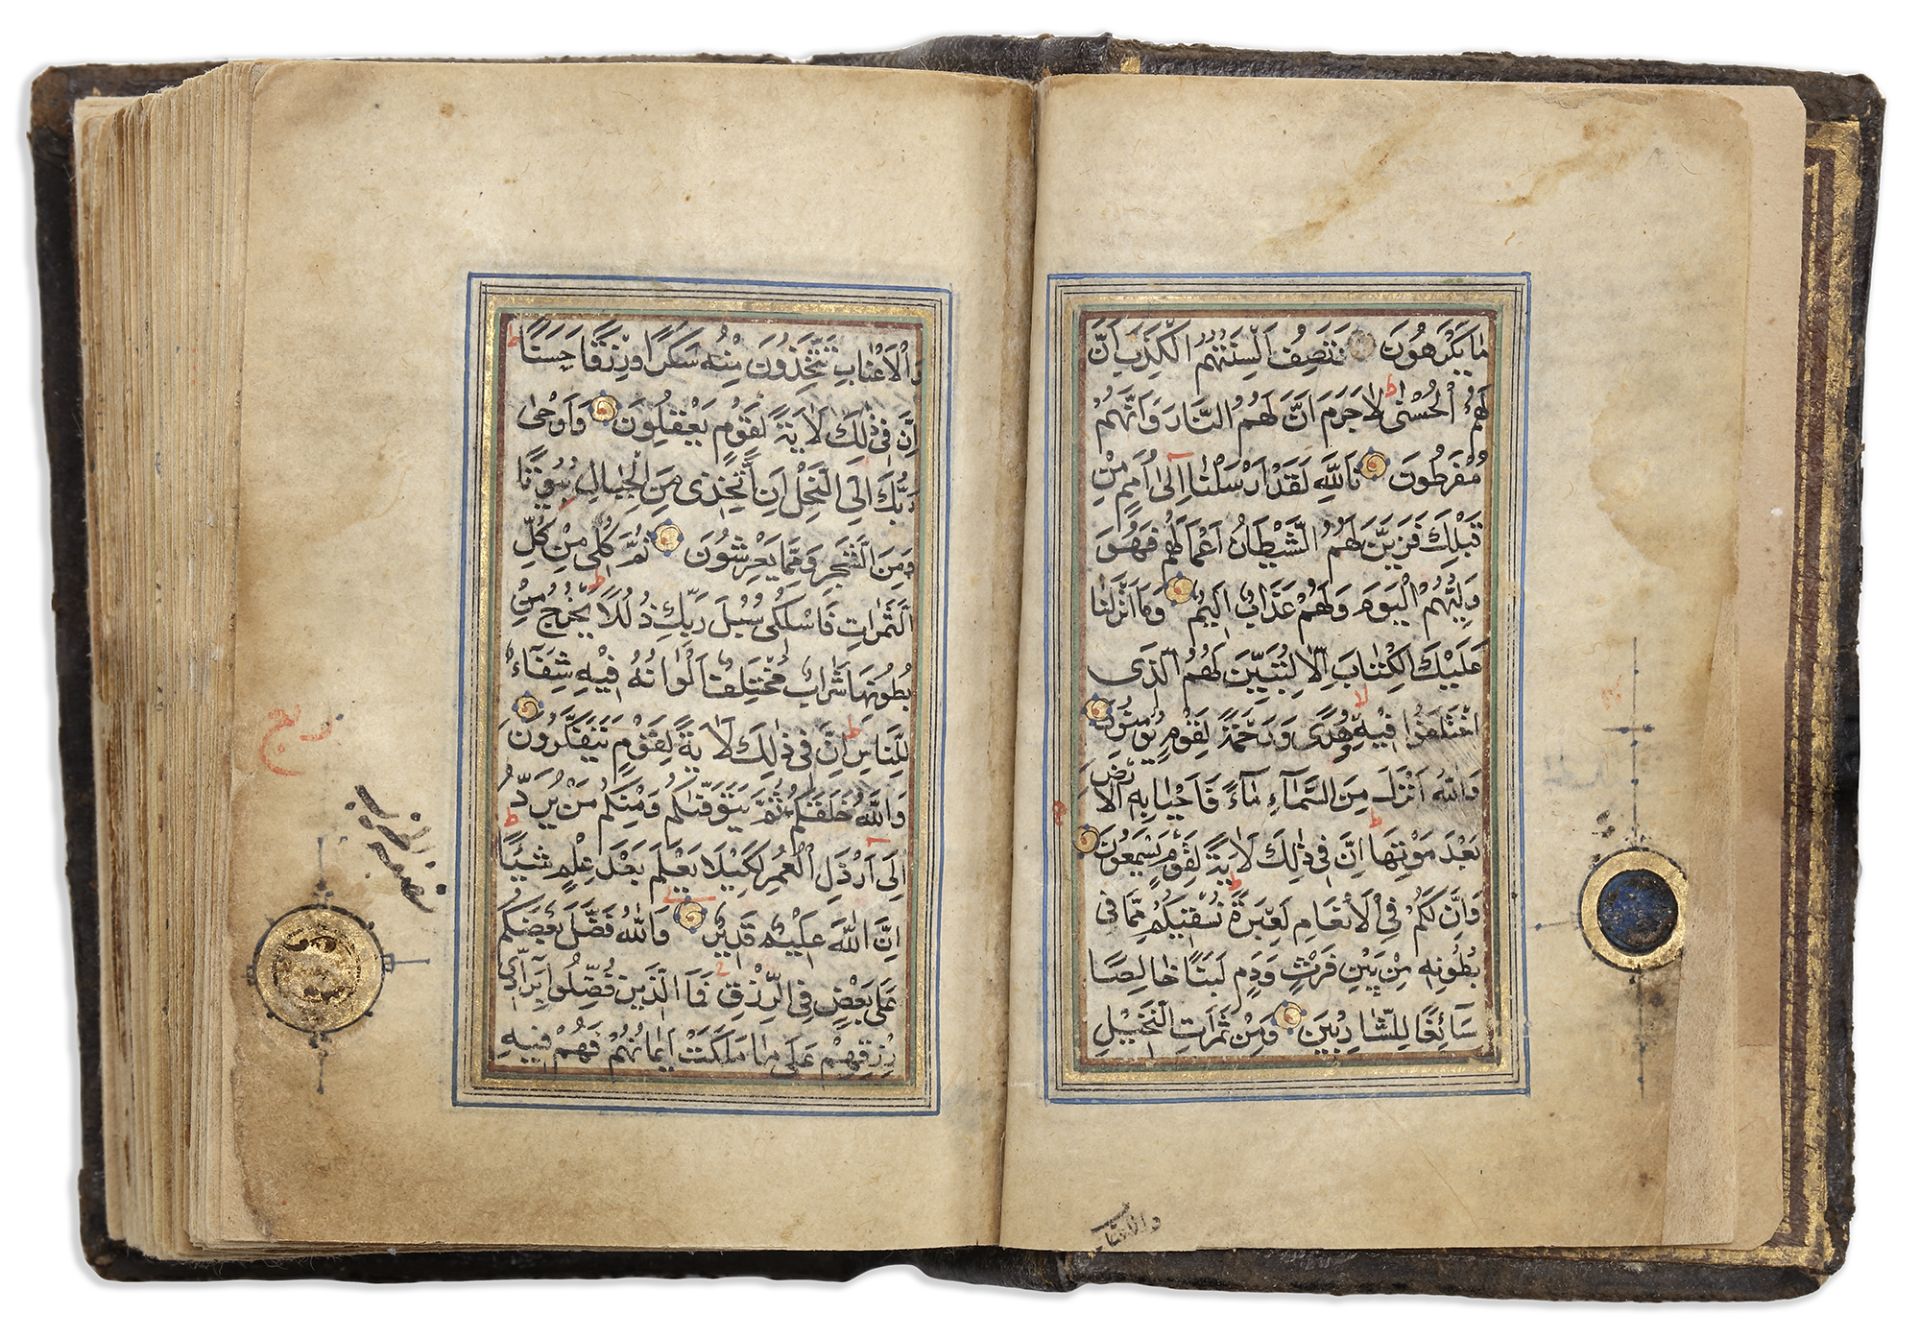 مَا يَكْرَهُونَ وَتَصِفُ اَلْسِنَتُهُمُ الْكَذِبَ اَنَّ
لَهُمُ الْحُسْنٰى لَا جَرَمَ اَنَّ لَهُمُ النَّارَ وَاَنَّهُمْ
مُفْرَطُونَ تَاللّٰهِ لَقَدْ اَرْسَلْنَا اِلٰى اُمَمٍ مِنْ
قَبْلِكَ فَزَيَّنَ لَهُمُ الشَّيْطَانُ اَعْمَالَهُمْ فَهُوَ
وَلِيُّهُمُ الْيَوْمَ وَلَهُمْ عَذَابٌ اَلِيمٌ وَمَا اَنْزَلْنَا
عَلَيْكَ الْكِتَابَ اِلَّا لِتُبَيِّنَ لَهُمُ الَّذِى
اخْتَلَفُوا فِيهِ وَهُدًى وَرَحْمَةً لِقَوْمٍ يُؤْمِنُونَ
وَاللّٰهُ اَنْزَلَ مِنَ السَّمَاءِ مَاءً فَاَحْيَا بِهِ الْاَرْضَ
بَعْدَ مَوْتِهَا اِنَّ فِى ذٰلِكَ لَاٰيَةً لِقَوْمٍ يَسْمَعُونَ
وَاِنَّ لَكُمْ فِى الْاَنْعَامِ لَعِبْرَةً نُسْقِيكُمْ مِمَّا فِى
بُطُونِهِ مِنْ بَيْنِ فَرْثٍ وَدَمٍ لَبَنًا خَالِصًا
سَائِغًا لِلشَّارِبِينَ وَمِنْ ثَمَرَاتِ النَّخِيلِ
والاعناب
وَالْاَعْنَابِ تَتَّخِذُونَ مِنْهُ سَكَرًا وَرِزْقًا حَسَنًا
اِنَّ فِى ذٰلِكَ لَاٰيَةً لِقَوْمٍ يَعْقِلُونَ وَاَوْحٰى
رَبُّكَ اِلَى النَّحْلِ اَنِ اتَّخِذِى مِنَ الْجِبَالِ بُيُوتًا
وَمِنَ الشَّجَرِ وَمِمَّا يَعْرِشُونَ ثُمَّ كُلِى مِنْ كُلِّ
الثَّمَرَاتِ فَاسْلُكِى سُبُلَ رَبِّكِ ذُلُلًا يَخْرُجُ مِنْ
بُطُونِهَا شَرَابٌ مُخْتَلِفٌ اَلْوَانُهُ فِيهِ شِفَاءٌ
لِلنَّاسِ اِنَّ فِى ذٰلِكَ لَاٰيَةً لِقَوْمٍ يَتَفَكَّرُونَ
وَاللّٰهُ خَلَقَكُمْ ثُمَّ يَتَوَفّٰيكُمْ وَمِنْكُمْ مَنْ يُرَدُّ
اِلَى اَرْذَلِ الْعُمُرِ لِكَيْلَا يَعْلَمَ بَعْدَ عِلْمٍ شَيْئًا
اِنَّ اللّٰهَ عَلِيمٌ قَدِيرٌ وَاللّٰهُ فَضَّلَ بَعْضَكُمْ
عَلٰى بَعْضٍ فِى الرِّزْقِ فَمَا الَّذِينَ فُضِّلُوا بِرَادِّى
رِزْقِهِمْ عَلٰى مَا مَلَكَتْ اَيْمَانُهُمْ فَهُمْ فِيهِ
نصف الحزب